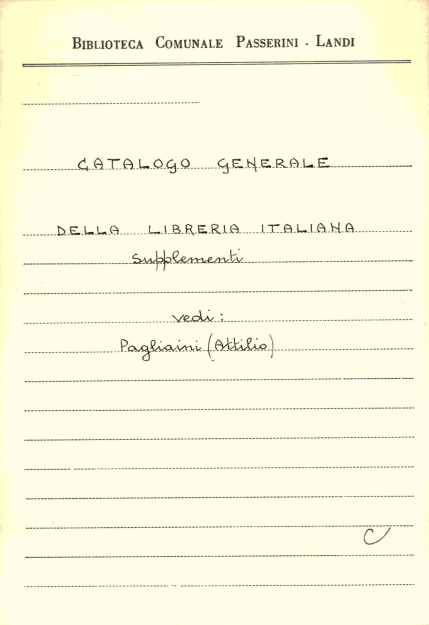 BIBLIOTECA COMUNALE PASSERINI - LANDI
CATALOGO GENERALE
DELLA LIBRERIA ITALIANA
Supplementi
vedi:
Pagliaini (Attilio)
C